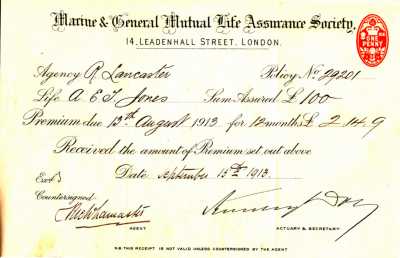 Marine & General Mutual Life Assurance Society.
14, LEADENHALL STREET, LONDON.
ONE PENNY
Agency R. Lancaster Policy No. 29201
Life A E J Jones Sum Assured £ 100
Premium due 13th August 1913 for 12 months £ 2.14.9
Received the amount of Premium set out above
Date September 13th 1913.
Exd
Countersigned
AGENT ACTUARY & SECRETARY
N.B. THIS RECEIPT IS NOT VALID UNLESS COUNTERSIGNED BY THE AGENT